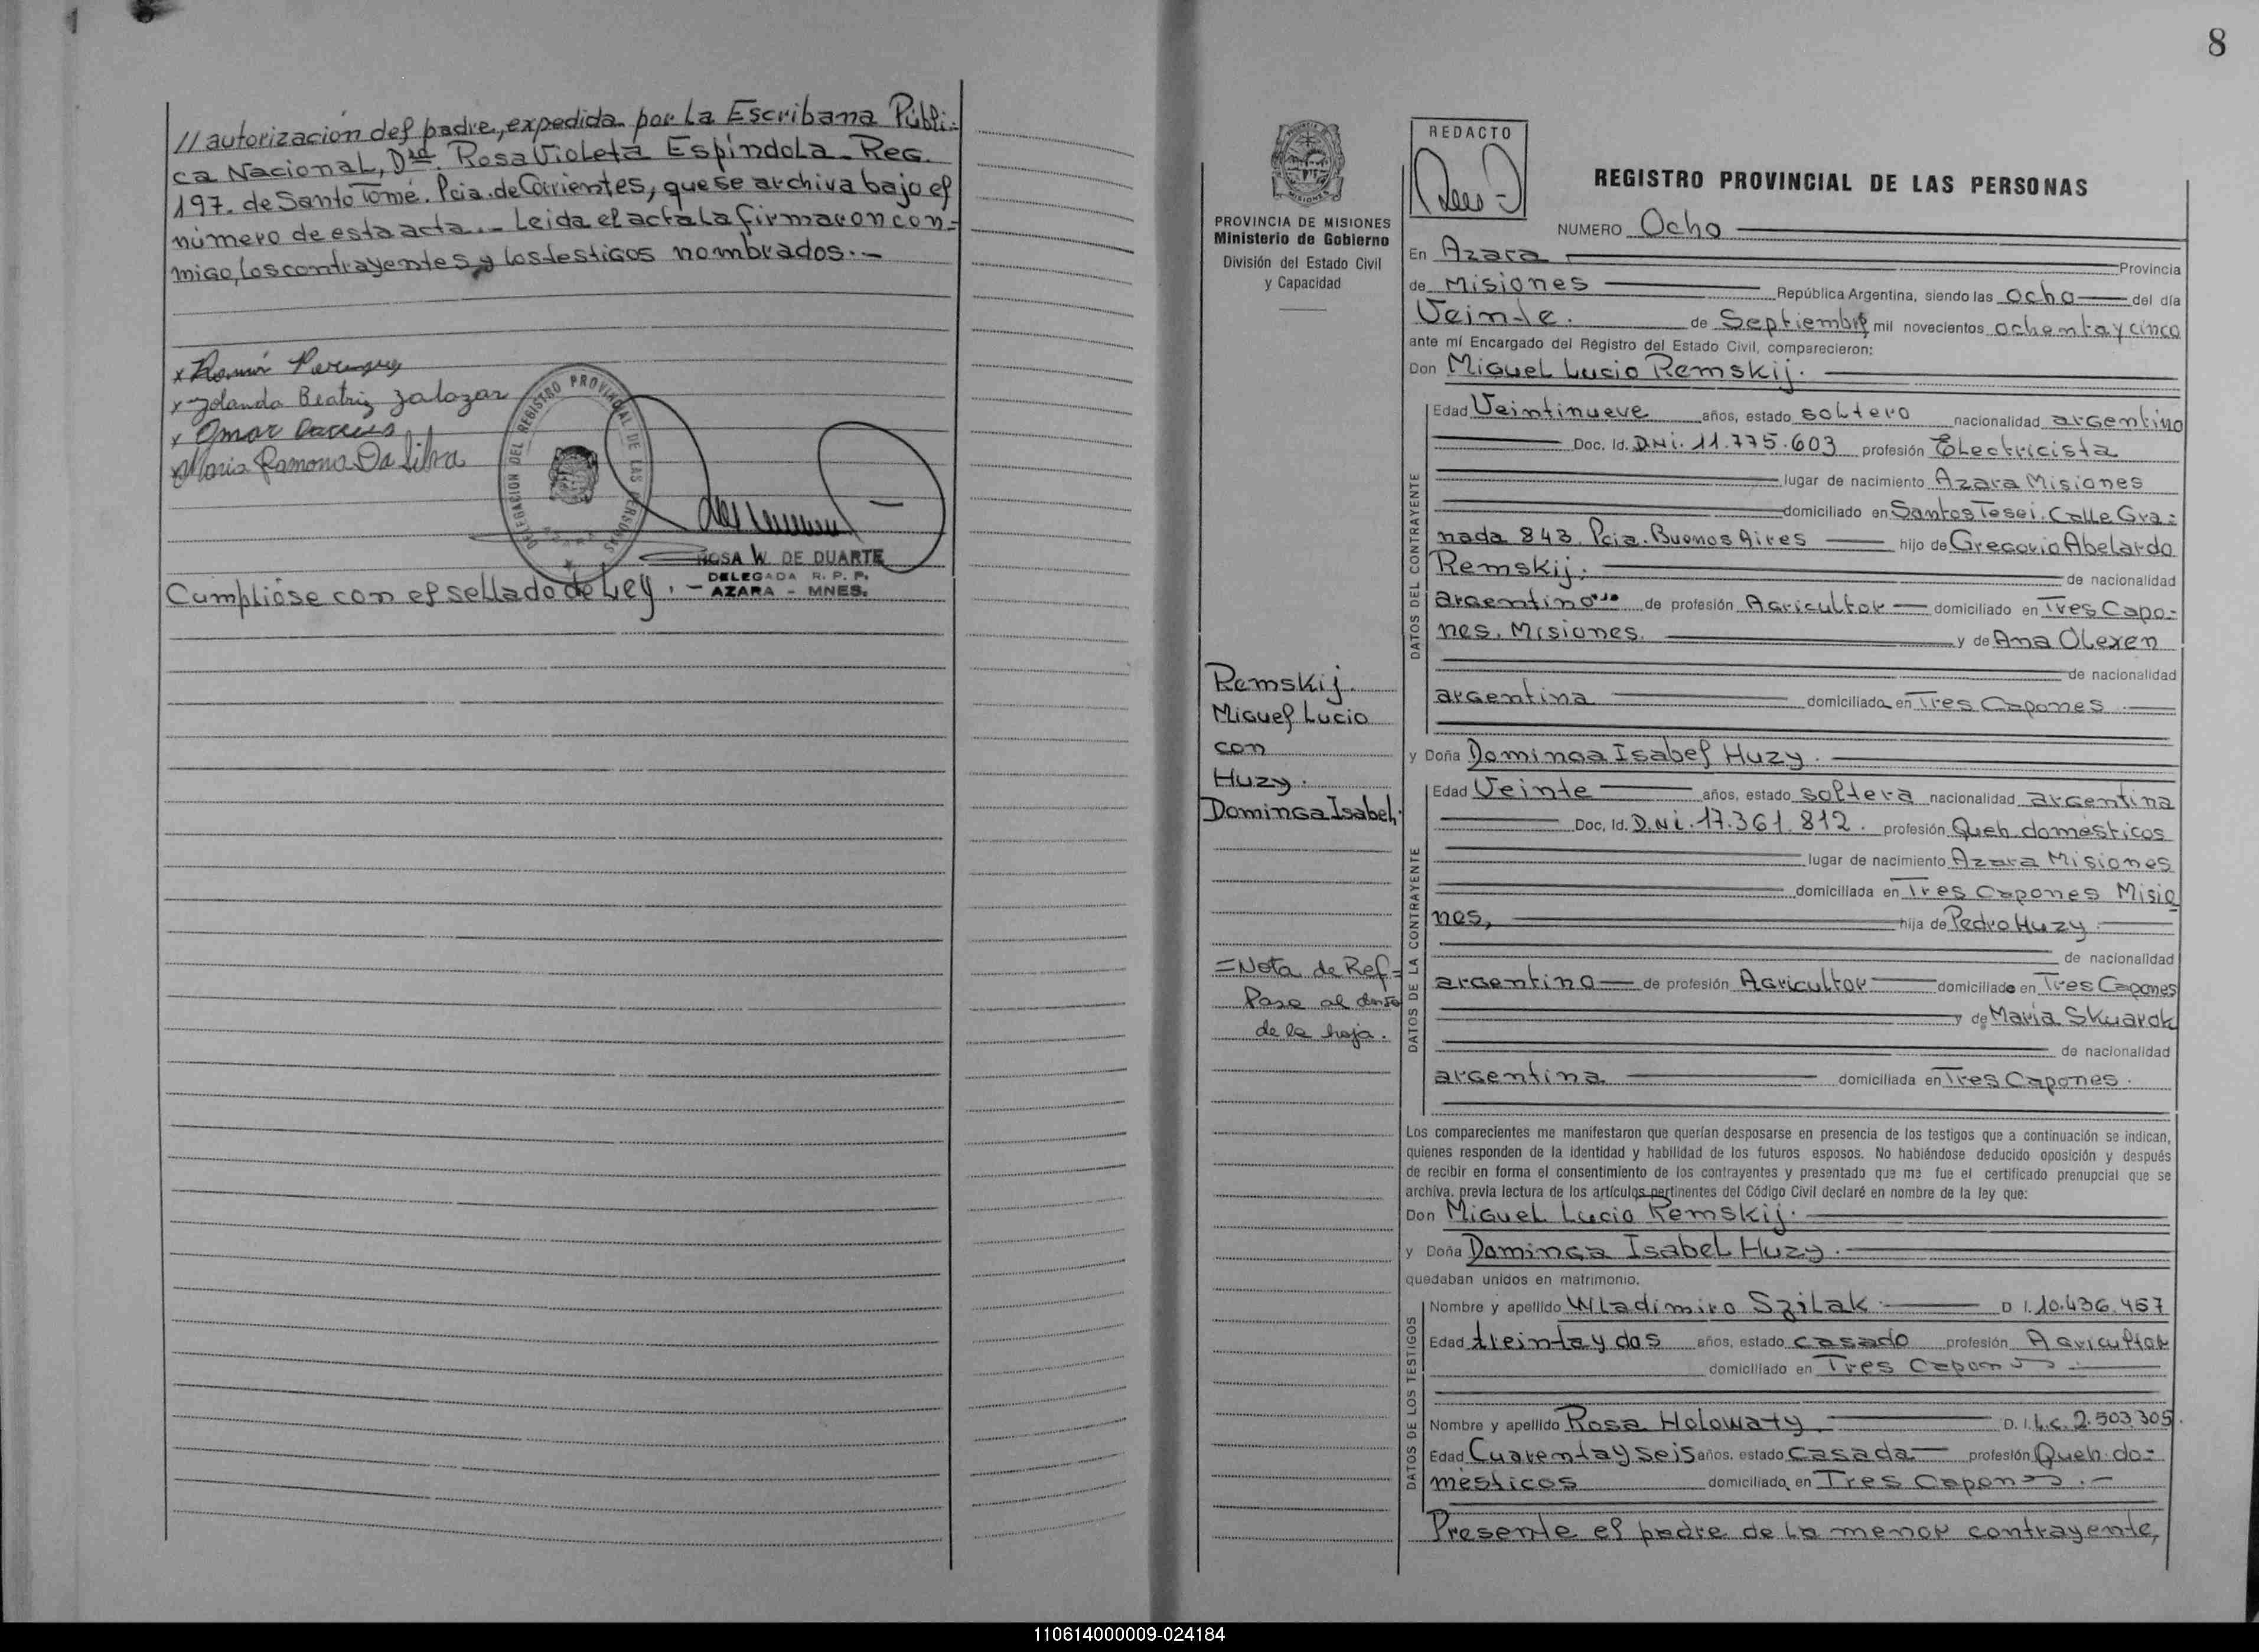 // autorización del padre, expedida por La Escribana Públi-
ca Nacional, Dra. Rosa Violeta Espíndola. Reg.
197. de Santo Tomé. Pcia. de Corrientes, que se archiva bajo el
número de esta acta.- Leida el acta La firmaron con-
migo, los contrayentes y los testigos nombrados.-
x Ramón
x Yolanda Beatriz Zalazar
x Omar
x Maria Ramona Da Silva
DELEGACION DEL REGISTRO PROVINCIAL DE LAS PERSONAS
ROSA W. DE DUARTE
DELEGADA R. P. P.
AZARA - MNES.
Cumplióse con el sellado de Ley.-
8
PROVINCIA DE MISIONES
Ministerio de Gobierno
División del Estado Civil
y Capacidad
Remskij.
Miguel Lucio
con
Huzy.
Dominga Isabel.
=Nota de Ref=
Pasa al dorso
de la hoja.
REDACTO
REGISTRO PROVINCIAL DE LAS PERSONAS
NUMERO Ocho
En Azara Provincia
de Misiones República Argentina, siendo las ocho del día
Veinte. de Septiembre mil novecientos ochenta y cinco
ante mí Encargado del Registro del Estado Civil, comparecieron:
Don Miguel Lucio Remskij.
DATOS DEL CONTRAYENTE
Edad Veintinueve años, estado soltero nacionalidad argentino
Doc. Id. D.N.i. 11.775.603 profesión Electricista
lugar de nacimiento Azara Misiones
domiciliado en Santos Tesei. Calle Gra-
nada 843. Pcia. Buenos Aires hijo de Gregorio Abelardo
Remskij. de nacionalidad
argentino de profesión Agricultor domiciliado en Tres Capo-
nes. Misiones. y de Ana Olexen
de nacionalidad
argentina domiciliada en Tres Capones
y Doña Dominga Isabel Huzy.
DATOS DE LA CONTRAYENTE
Edad Veinte años, estado soltera nacionalidad argentina
Doc. Id. D.N.i. 17.361.812. profesión Queh. domésticos
lugar de nacimiento Azara Misiones
domiciliada en Tres Capones Misio
nes, hija de Pedro Huzy.
de nacionalidad
argentino de profesión Agricultor domiciliado en Tres Capones
y de Maria Skuarok
de nacionalidad
argentina domiciliada en Tres Capones.
Los comparecientes me manifestaron que querían desposarse en presencia de los testigos que a continuación se indican,
quienes responden de la identidad y habilidad de los futuros esposos. No habiéndose deducido oposición y después
de recibir en forma el consentimiento de los contrayentes y presentado que me fue el certificado prenupcial que se
archiva, previa lectura de los artículos pertinentes del Código Civil declaré en nombre de la ley que:
Don Miguel Lucio Remskij.
y Doña Dominga Isabel Huzy.
quedaban unidos en matrimonio.
DATOS DE LOS TESTIGOS
Nombre y apellido Wladimiro Szilak. D I. 10.436.457
Edad treinta y dos años, estado casado profesión Agricultor
domiciliado en Tres Capones
Nombre y apellido Rosa Holowaty. D. I. L.c. 2.503.305.
Edad Cuarenta y seis años, estado casada profesión Queh. do-
mésticos domiciliado en Tres Capones.-
Presente el padre de la menor contrayente,
110614000009-024184